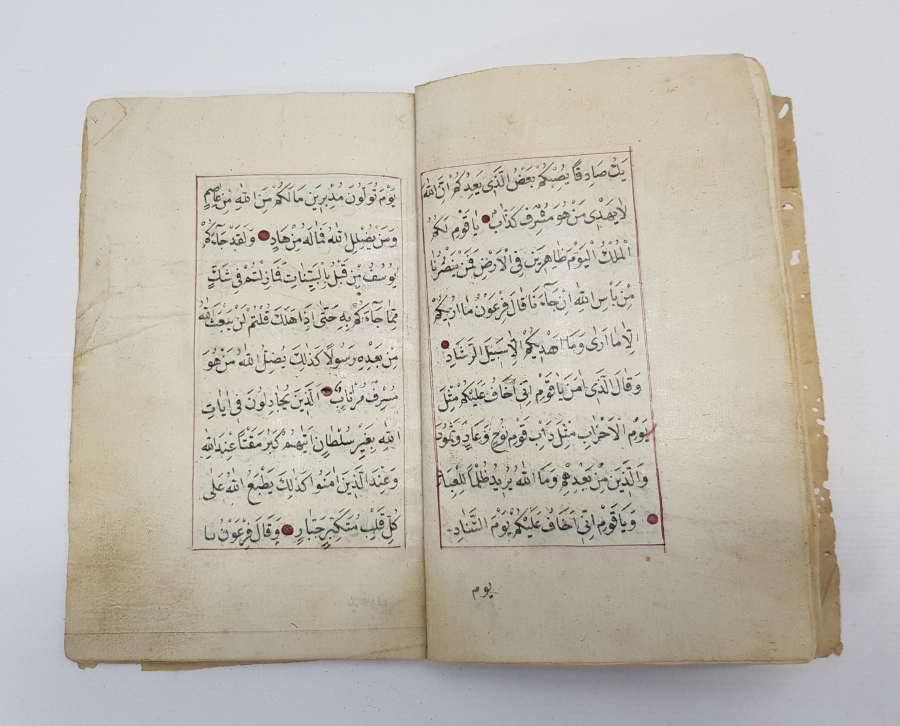 يَكُ صَادِقًا يُصِبْكُمْ بَعْضُ الَّذِي يَعِدُكُمْ اِنَّ اللهَ
لَا يَهْدِي مَنْ هُوَ مُسْرِفٌ كَذَّابٌ يَا قَوْمِ لَكُمُ
الْمُلْكُ الْيَوْمَ ظَاهِرِينَ فِي الْاَرْضِ فَمَنْ يَنْصُرُنَا
مِنْ بَاْسِ اللهِ اِنْ جَاءَنَا قَالَ فِرْعَوْنُ مَا اُرِيكُمْ
اِلَّا مَا اَرٰى وَمَا اَهْدِيكُمْ اِلَّا سَبِيلَ الرَّشَادِ
وَقَالَ الَّذِي اٰمَنَ يَا قَوْمِ اِنِّي اَخَافُ عَلَيْكُمْ مِثْلَ
يَوْمِ الْاَحْزَابِ مِثْلَ دَاْبِ قَوْمِ نُوحٍ وَعَادٍ وَثَمُودَ
وَالَّذِينَ مِنْ بَعْدِهِمْ وَمَا اللهُ يُرِيدُ ظُلْمًا لِلْعِبَادِ
وَيَا قَوْمِ اِنِّي اَخَافُ عَلَيْكُمْ يَوْمَ التَّنَادِ
يوم
يَوْمَ تُوَلُّونَ مُدْبِرِينَ مَا لَكُمْ مِنَ اللهِ مِنْ عَاصِمٍ
وَمَنْ يُضْلِلِ اللهُ فَمَا لَهُ مِنْ هَادٍ وَلَقَدْ جَاءَكُمْ
يُوسُفُ مِنْ قَبْلُ بِالْبَيِّنَاتِ فَمَا زِلْتُمْ فِي شَكٍّ
مِمَّا جَاءَكُمْ بِهِ حَتّٰى اِذَا هَلَكَ قُلْتُمْ لَنْ يَبْعَثَ اللهُ
مِنْ بَعْدِهِ رَسُولًا كَذٰلِكَ يُضِلُّ اللهُ مَنْ هُوَ
مُسْرِفٌ مُرْتَابٌ الَّذِينَ يُجَادِلُونَ فِي اٰيَاتِ
اللهِ بِغَيْرِ سُلْطَانٍ اَتٰيهُمْ كَبُرَ مَقْتًا عِنْدَ اللهِ
وَعِنْدَ الَّذِينَ اٰمَنُوا كَذٰلِكَ يَطْبَعُ اللهُ عَلٰى
كُلِّ قَلْبِ مُتَكَبِّرٍ جَبَّارٍ وَقَالَ فِرْعَوْنُ يَا